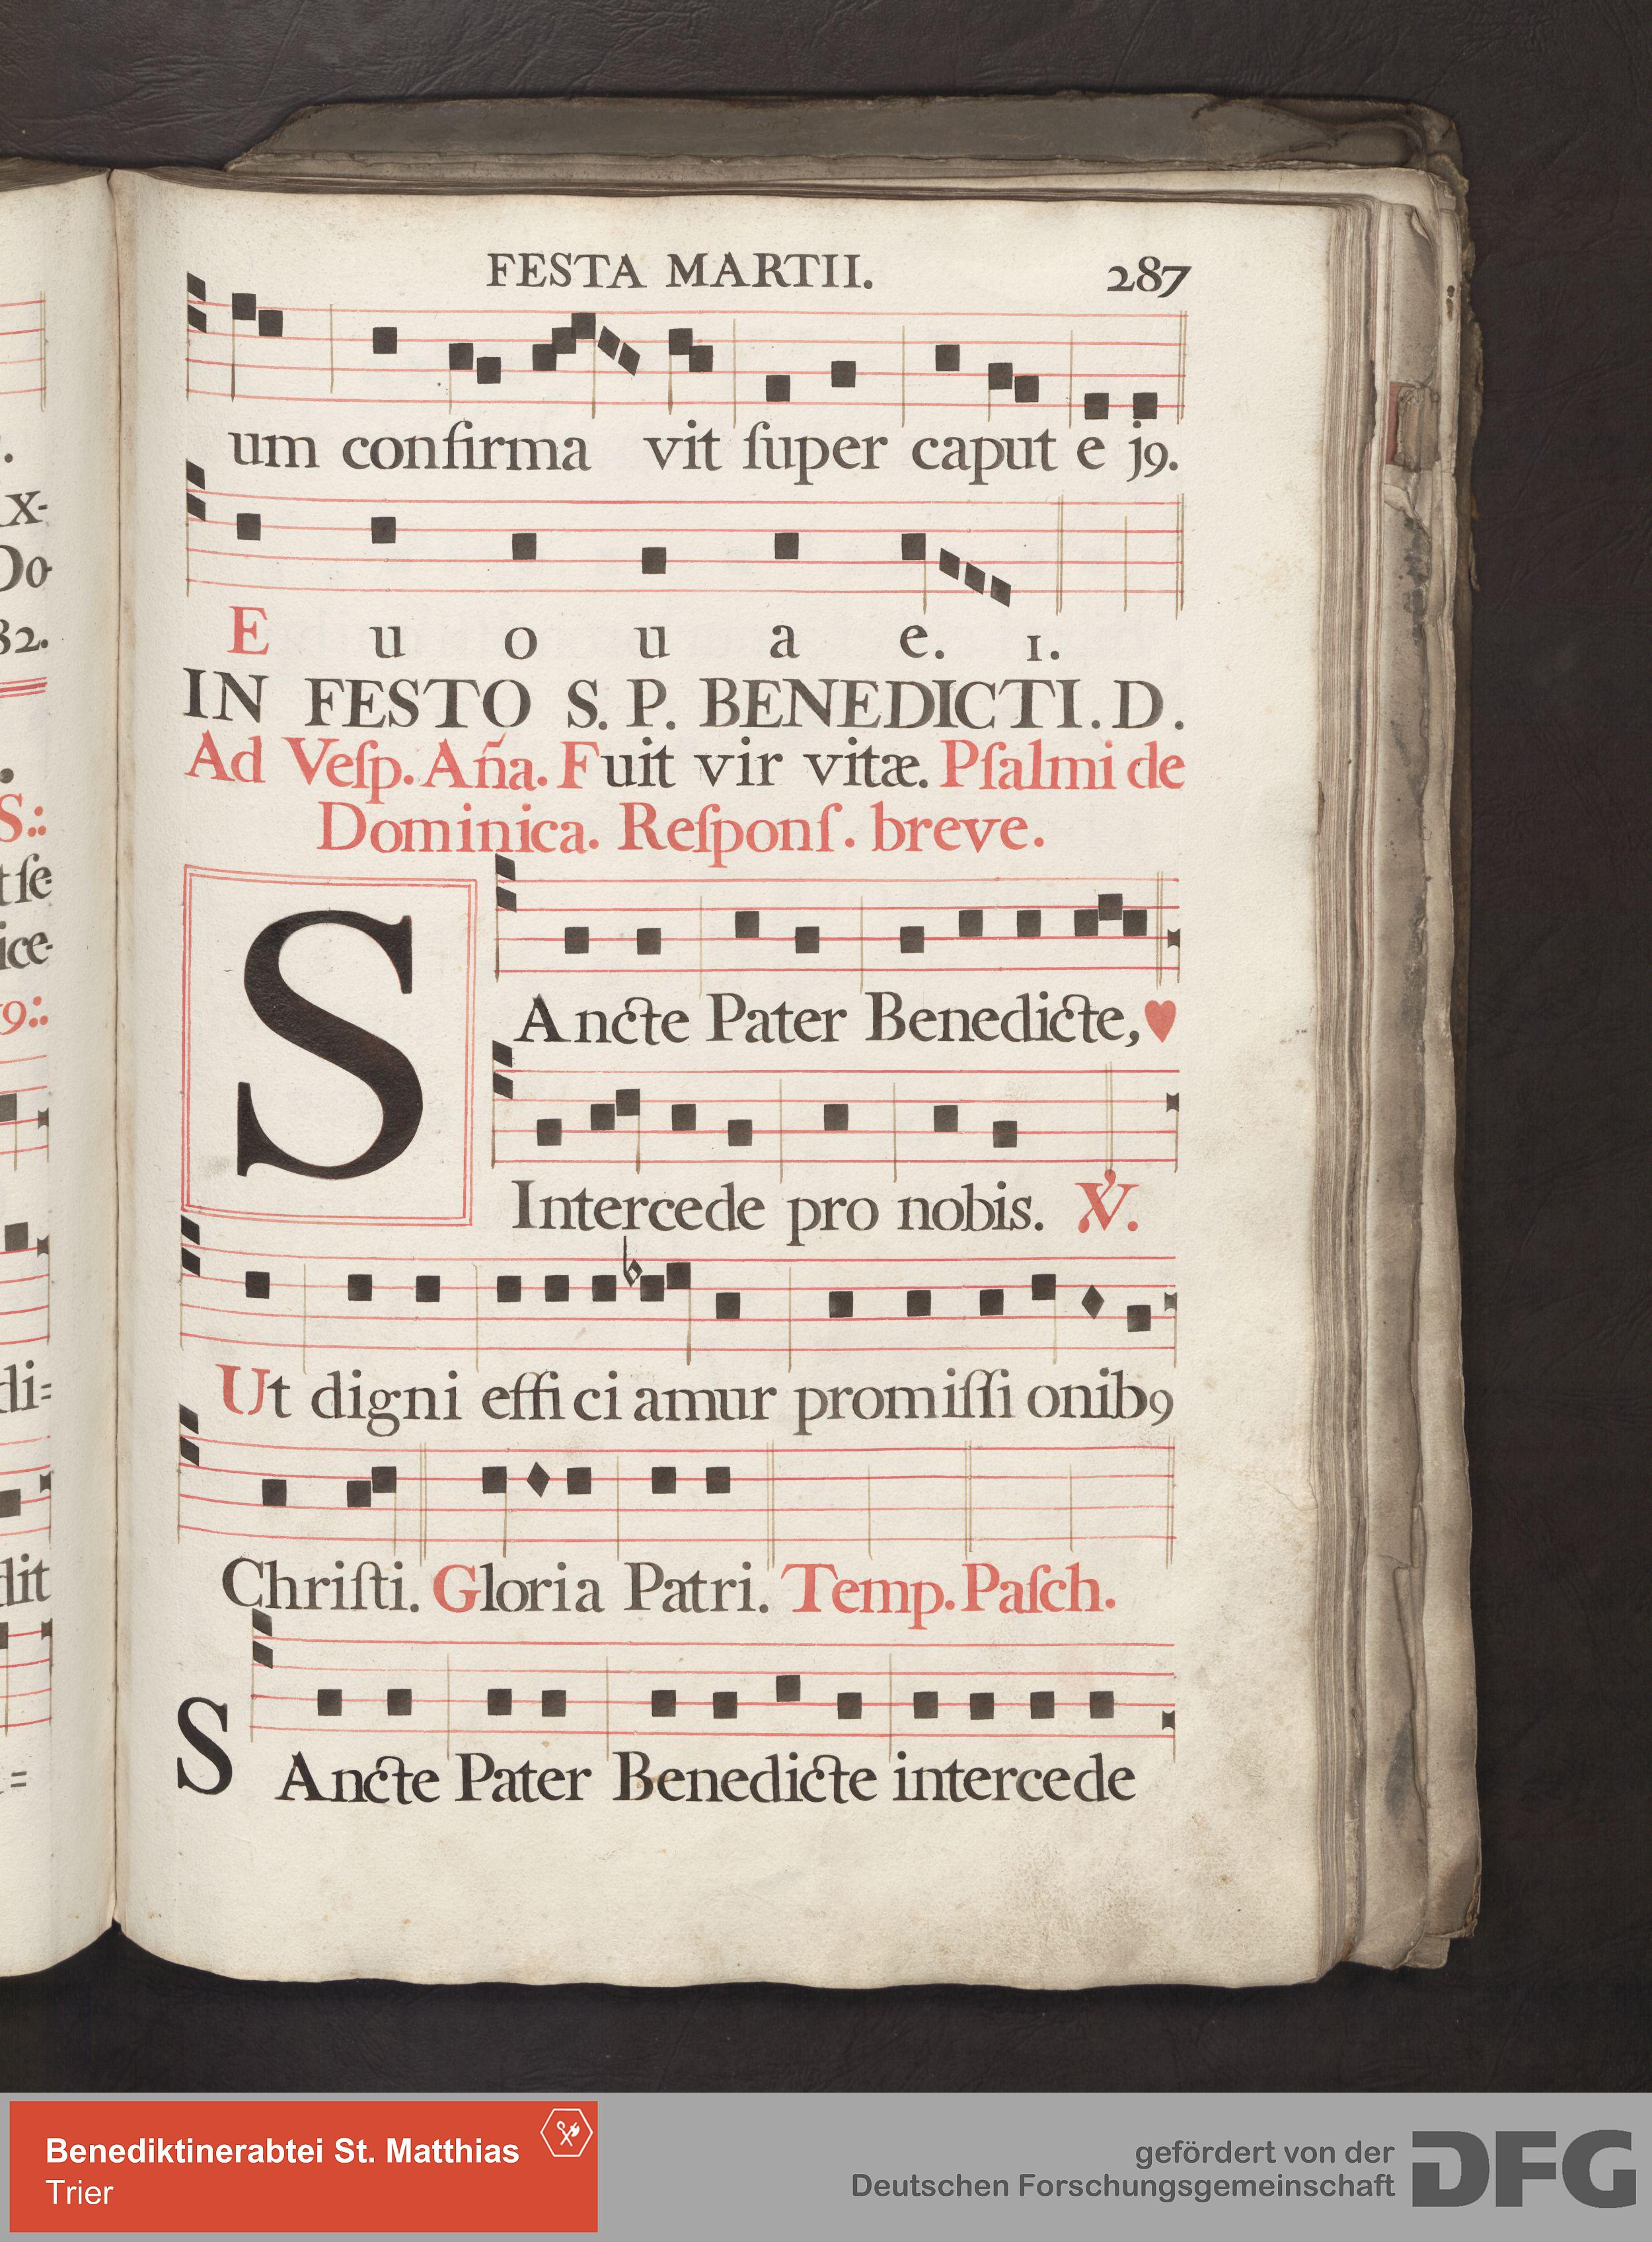 FESTA MARTII. 287
um confirma vit ſuper caput e j9.
E u o u a e. 1.
IN FESTO S. P. BENEDICTI. D.
Ad Veſp. Aña. Fuit vir vitæ. Pſalmi de
Dominica. Reſponſ. breve.
SAncte Pater Benedicte, ♥
Intercede pro nobis. ℣.
Ut digni effi ci amur promiſſi onib9
Chriſti. Gloria Patri. Temp. Paſch.
SAncte Pater Benedicte intercede
x-
Do
82.
S::
t ſe-
ice-
9::
di=
dit
=
Benediktinerabtei St. Matthias
Trier
gefördert von der
Deutschen Forschungsgemeinschaft
DFG